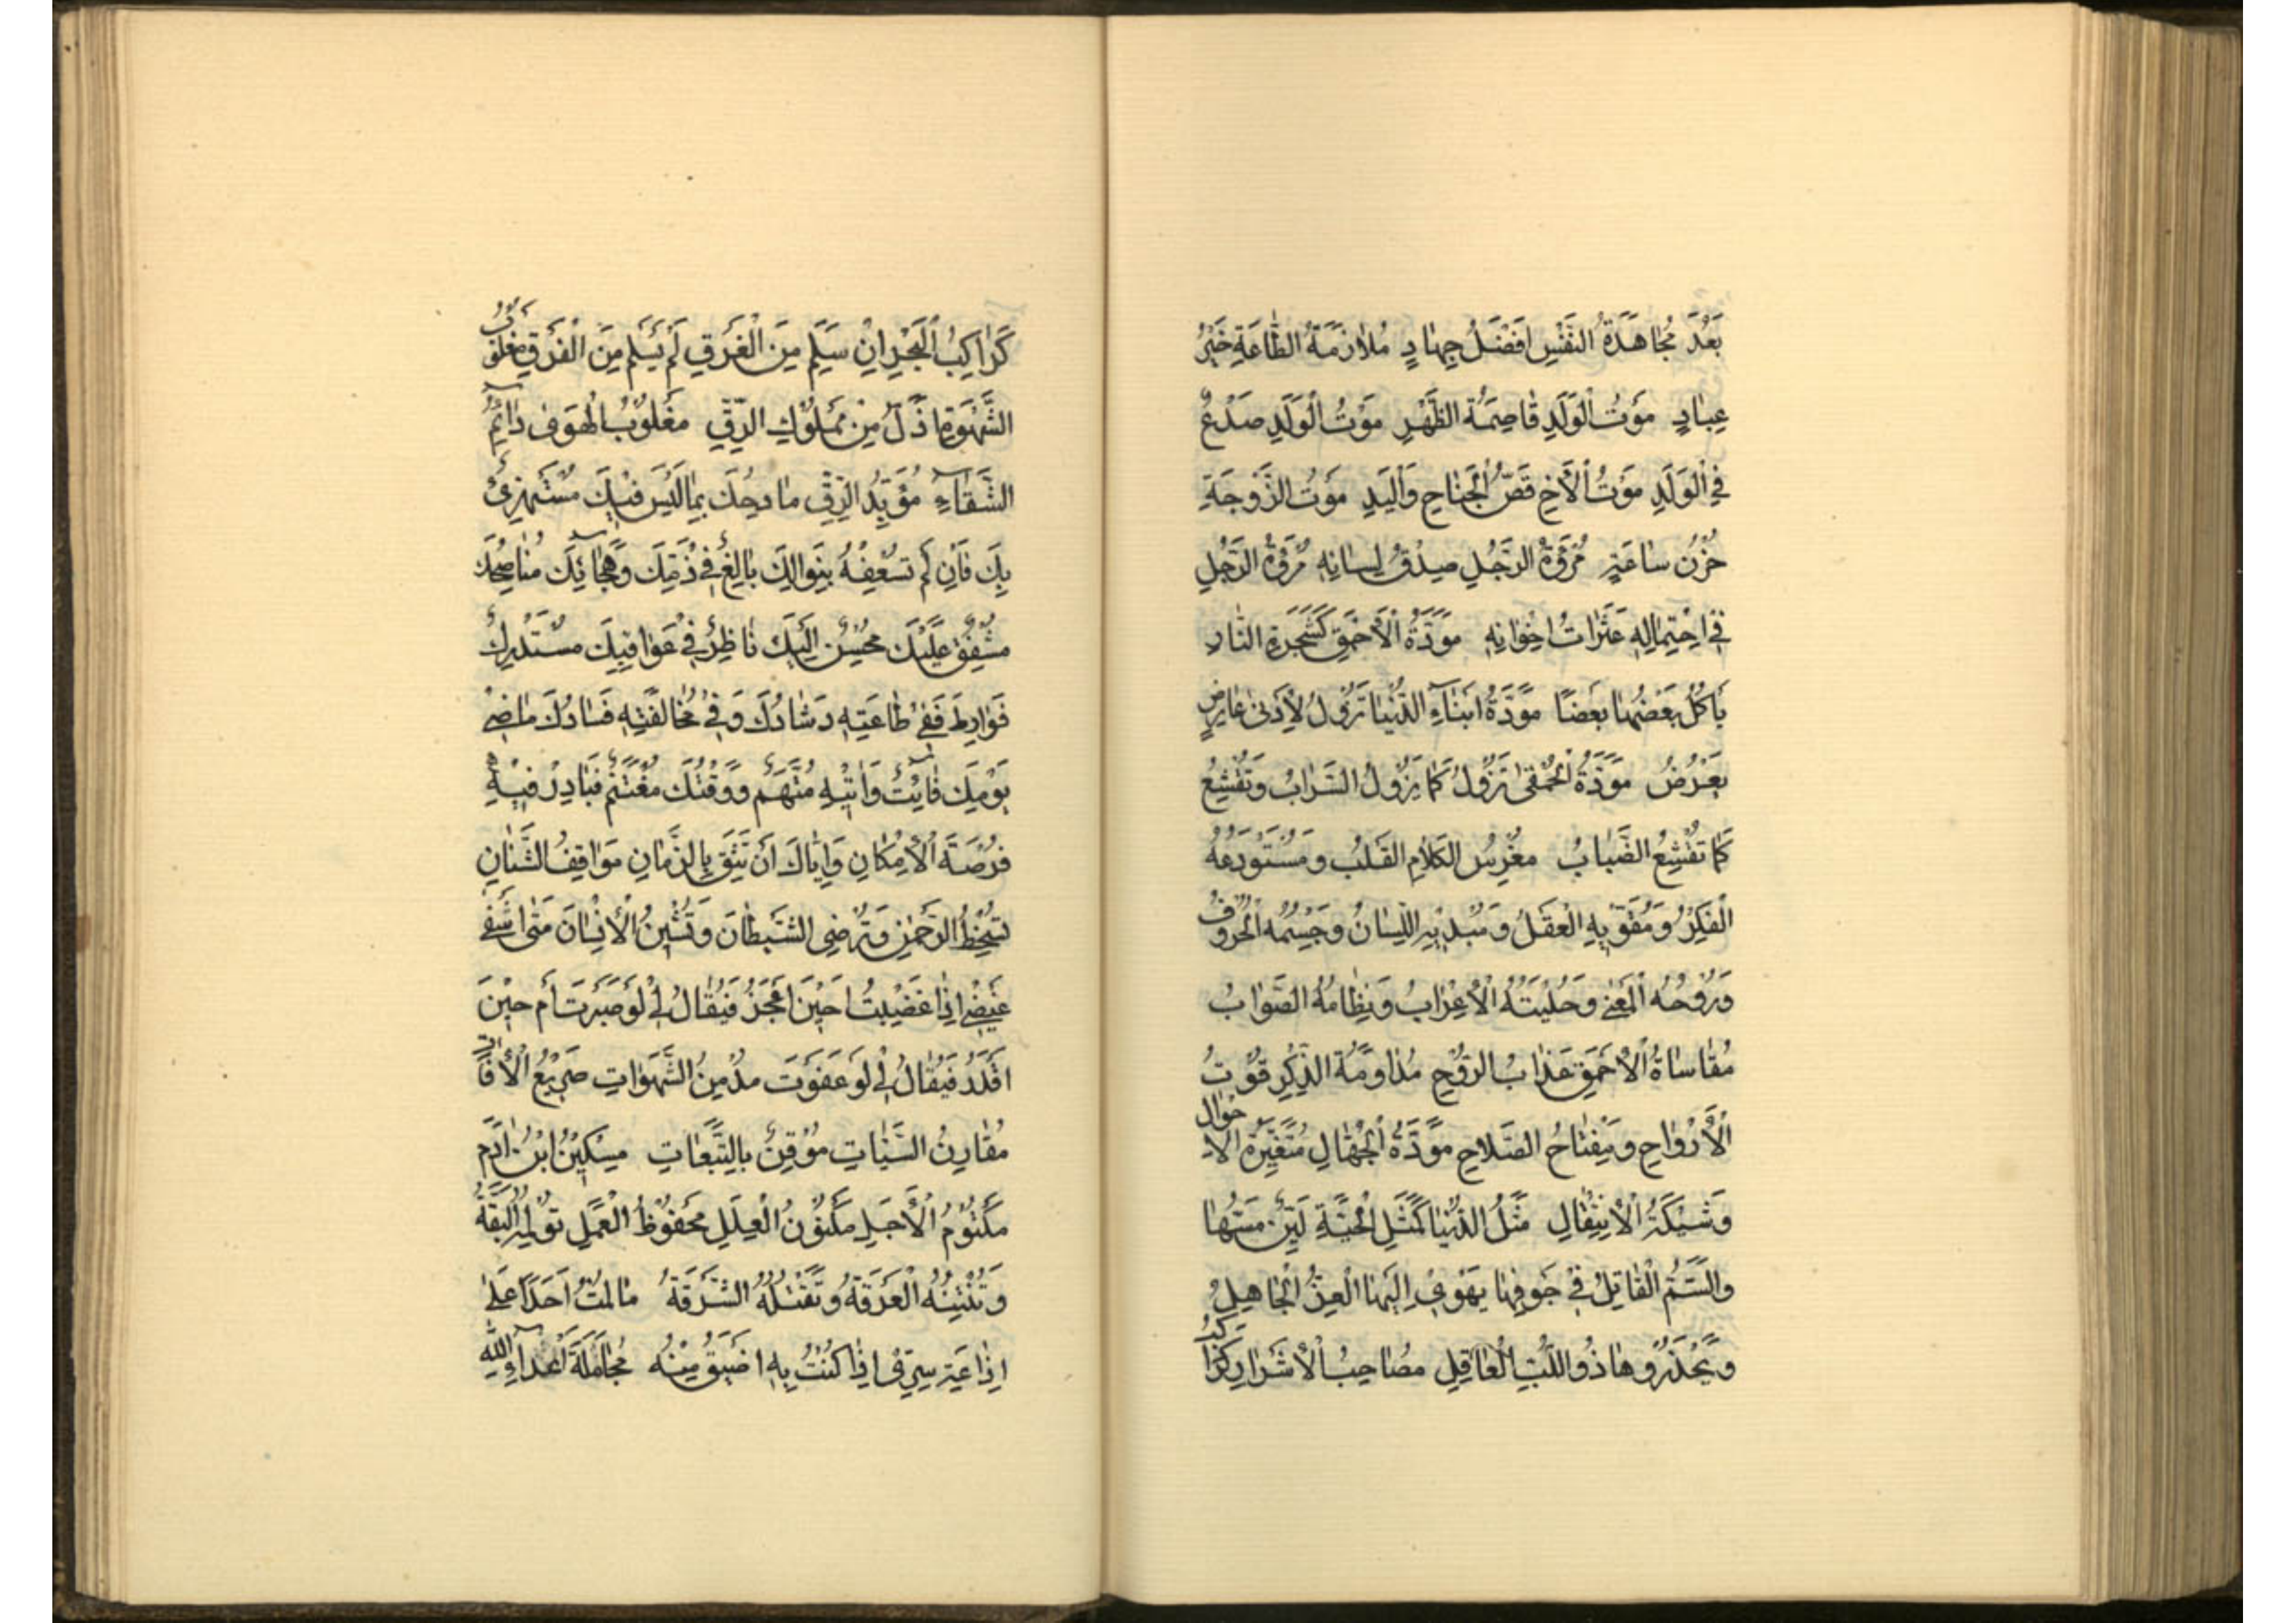 بَعُدَ مُجَاهَدَةُ النَّفْسِ اَفْضَلُ جِهَادٍ مُلَازَمَةُ الطَّاعَةِ خَيْرُ
عِبَادٍ مَوْتُ الْوَلَدِ قَاصِمَةُ الظَّهْرِ مَوْتُ الْوَلَدِ صَدْعٌ
فِي الْوَلَدِ مَوْتُ الْاَخِ قَصُّ الْجَنَاحِ وَالْيَدِ مَوْتُ الزَّوْجَةِ
حُزْنُ سَاعَةٍ مُرُوَّةُ الرَّجُلِ صِدْقُ لِسَانِهِ مُرُوَّةُ الرَّجُلِ
فِي احْتِمَالِهِ عَثَرَاتُ اِخْوَانِهِ مَوَدَّةُ الْاَحْمَقِ كَشَجَرَةِ النَّارِ
يَأْكُلُ بَعْضُهَا بَعْضًا مَوَدَّةُ اَبْنَآءِ الدُّنْيَا تَزُولُ لِاَدْنٰى عَارِضٍ
يَعْرُضُ مَوَدَّةُ الْحُمْقٰى تَزُولُ كَمَا يَزُولُ السَّرَابُ وَتُقْشِعُ
كَمَا تُقْشِعُ الضَّبَابُ مَغْرِسُ الْكَلَامِ الْقَلْبُ وَمُسْتَوْدَعُهُ
الْفِكْرُ وَمُقَوِّيهِ الْعَقْلُ وَمُبْدِيهِ اللِّسَانُ وَجِسْمُهُ الْحُرُوفُ
وَرُوحُهُ الْمَعْنٰى وَحُلِيَّتُهُ الْاِعْرَابُ وَنِظَامُهُ الصَّوَابُ
مُقَاسَاةُ الْاَحْمَقِ عَذَابُ الرُّوحِ مُدَاوَمَةُ الذِّكْرِ قُوتُ
الْاَرْوَاحِ وَمِفْتَاحُ الصَّلَاحِ مَوَدَّةُ الْجُهَّالِ مُتَغَيِّرَةُ الْاَحْوَالِ
وَشِيكَةُ الْاِنْتِقَالِ مَثَلُ الدُّنْيَا كَمَثَلِ الْحَيَّةِ لَيِّنٌ مَسُّهَا
وَالسَّمُّ الْقَاتِلُ فِي جَوْفِهَا يَهْوِي اِلَيْهَا الْغِرُّ الْجَاهِلُ
وَيَحْذَرُهَا ذُو اللُّبِّ الْعَاقِلِ مُصَاحِبُ الْاَشْرَارِ كَرَاكِبُ
كَرَاكِبُ الْبَحْرِ اِنْ سَلِمَ مِنَ الْغَرَقِ لَمْ يَسْلَمْ مِنَ الْفَرَقِ مَغْلُوبُ
الشَّهْوَةِ اَذَلُّ مِنْ مَمْلُوكِ الرِّقِّ مَغْلُوبُ الْهَوٰى دَآئِمُ
الشَّقَآءِ مُؤَيَّدُ الرِّقِّ مَادِحُكَ بِمَا لَيْسَ فِيكَ مُسْتَهْزِئٌ
بِكَ فَاِنْ لَمْ تَسْعِفْهُ بِنَوَالِكَ بَالَغَ فِي ذَمِّكَ وَهِجَآئِكَ مُنَاصِحُكَ
مُشْفِقٌ عَلَيْكَ مُحْسِنٌ اِلَيْكَ نَاظِرٌ فِي عَوَاقِبِكَ مُسْتَدْرِكٌ
فَوَارِطَ فَفِي طَاعَتِهِ رَشَادُكَ وَفِي مُخَالَفَتِهِ فَسَادُكَ مَاضِي
يَوْمِكَ فَائِتٌ وَاٰتِيهِ مُتَّهَمٌ وَوَقْتُكَ مُغْتَنَمٌ فَبَادِرْ فِيهِ
فُرْصَةَ الْاِمْكَانِ وَاِيَّاكَ اَنْ تَثِقَ بِالزَّمَانِ مَوَاقِفُ الشَّنَانِ
تُسْخِطُ الرَّحْمٰنَ وَتُرْضِي الشَّيْطَانَ وَتَشِينُ الْاِنْسَانَ مَتٰى اَشْفِي
غَيْضِي اِذَا غَضِبْتُ اَحِينَ اَعْجَزُ فَيُقَالُ لِي لَوْ صَبَرْتَ اَمْ حِينَ
اَقْدِرُ فَيُقَالُ لِي لَوْ عَفَوْتَ مُدْمِنُ الشَّهَوَاتِ صَرِيعُ الْاٰفَاتِ
مُقَارِنُ السَّيِّاٰتِ مُوقِنٌ بِالتَّبِعَاتِ مِسْكِينٌ ابْنُ اٰدَمَ
مَكْتُومُ الْاَجَلِ مَكْنُونُ الْعِلَلِ مَحْفُوظُ الْعَمَلِ تُؤْلِمُهُ الْبَقَّةُ
وَتُنْتِنُهُ الْعَرَقَةُ وَتَقْتُلُهُ الشَّرَقَةُ مَا لُمْتُ اَحَدًا عَلٰى
اِذَاعَةِ سِرِّي اِذَا كُنْتُ بِهِ اَضْيَقُ مِنْهُ مُجَامَلَةُ اَعْدَآءِ اللّٰهِ